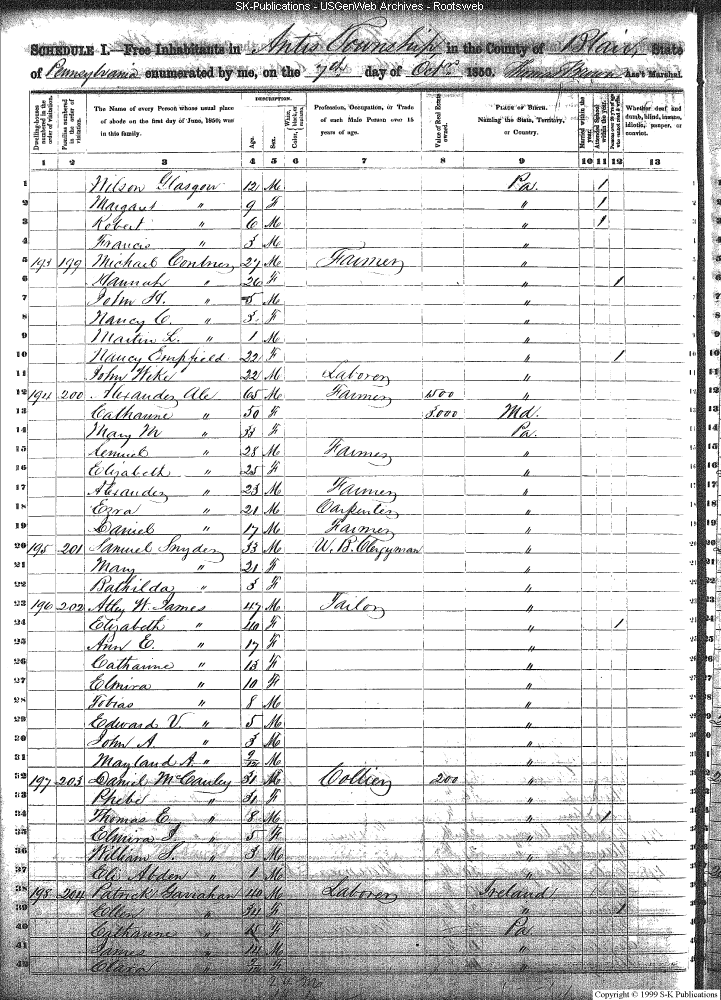 SK-Publications - USGenWeb Archives - Rootsweb
SCHEDULE I.—Free Inhabitants in Antis Township in the County of Blair State
of Pennsylvania enumerated by me, on the 7th day of Oct 1850. Ass't Marshal.
Dwelling-houses numbered in the order of visitation.
Families numbered in the order of visitation.
The Name of every Person whose usual place of abode on the first day of June, 1850, was in this family.
DESCRIPTION.
Age.
Sex.
Color, White, black, or mulatto.
Profession, Occupation, or Trade of each Male Person over 15 years of age.
Value of Real Estate owned.
PLACE OF BIRTH. Naming the State, Territory, or Country.
Married within the year.
Attended School within the year.
Persons over 20 y'rs of age who cannot read & write.
Whether deaf and dumb, blind, insane, idiotic, pauper, or convict.
1 2 3 4 5 6 7 8 9 10 11 12 13
1 Wilson Glasgow 12 M Pa. 1
2 Margaret " 9 F " 1
3 Robert " 6 M " 1
4 Francis " 3 M "
5 193 199 Michael 27 M Farmer "
6 Hannah " 26 F " 1
7 John H. " 5 M "
8 Nancy C. " 3 F "
9 Martin L. " 1 M "
10 Nancy Empfield 22 F " 1
11 John Wike 22 M Laborer "
12 194 200 Alexander Ale 65 M Farmer 1500 "
13 Catharine " 50 F 3000 Md.
14 Mary M " 33 F Pa.
15 Lemuel " 28 M Farmer "
16 Elizabeth " 25 F "
17 Alexander " 23 M Farmer "
18 Ezra " 21 M Carpenter "
19 Daniel " 17 M Farmer "
20 195 201 Samuel Snyder 33 M U. B. Clergyman "
21 Mary " 21 F "
22 Bathilda " 3 F "
23 196 202 Atley W. James 47 M Tailor "
24 Elizabeth " 40 F " 1
25 Ann E. " 17 F "
26 Catharine " 13 F "
27 Elmira " 10 F "
28 Tobias " 8 M "
29 Edward V. " 5 M "
30 John A. " 3 M "
31 Mayland A. " 9/12 M "
32 197 203 Daniel McCauley 31 M Collier 200 "
33 Phebe " 31 F "
34 Thomas E. " 8 M " 1
35 Elmira J. " 5 F "
36 William S. " 3 M "
37 Eli Abden " 1 M "
38 198 204 Patrick 40 M Laborer Ireland
39 Ellen " 34 F " 1
40 Catharine " F Pa
41 James " M "
42 Clara " "
Copyright © 1999 S-K Publications